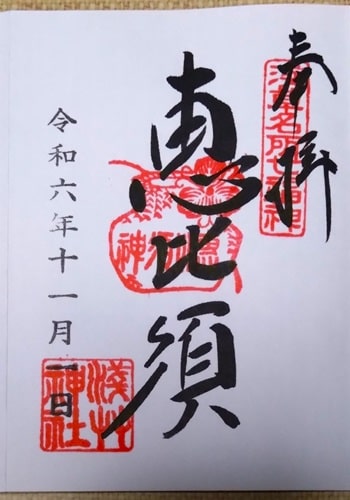 奉拝
浅草名所七福神
恵比須
令和六年十一月一日
浅草
神社